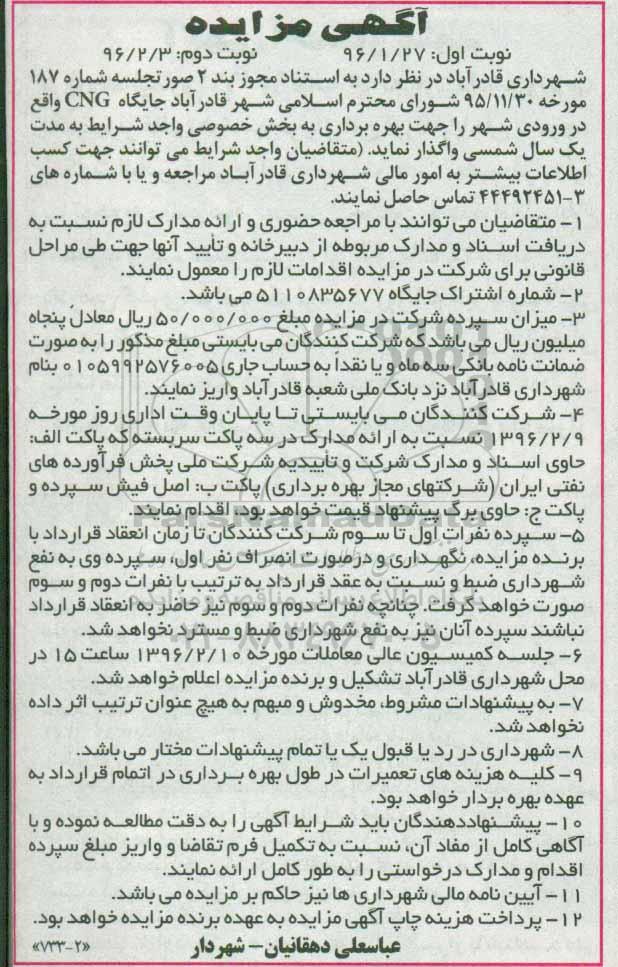 آگهی مزایده
نوبت اول: ۹۶/۱/۲۷ نوبت دوم: ۹۶/۲/۳
شهرداری قادرآباد در نظر دارد به استناد مجوز بند ۲ صورتجلسه شماره ۱۸۷
مورخه ۹۵/۱۱/۳۰ شورای محترم اسلامی شهر قادرآباد جایگاه CNG واقع
در ورودی شهر را جهت بهره برداری به بخش خصوصی واجد شرایط به مدت
یک سال شمسی واگذار نماید. (متقاضیان واجد شرایط می توانند جهت کسب
اطلاعات بیشتر به امور مالی شهرداری قادرآباد مراجعه و یا با شماره های
۳-۴۴۴۹۲۴۵۱ تماس حاصل نمایند.
۱- متقاضیان می توانند با مراجعه حضوری و ارائه مدارک لازم نسبت به
دریافت اسناد و مدارک مربوطه از دبیرخانه و تأیید آنها جهت طی مراحل
قانونی برای شرکت در مزایده اقدامات لازم را معمول نمایند.
۲- شماره اشتراک جایگاه ۵۱۱۰۸۳۵۶۷۷ می باشد.
۳- میزان سپرده شرکت در مزایده مبلغ ۵۰/۰۰۰/۰۰۰ ریال معادل پنجاه
میلیون ریال می باشد که شرکت کنندگان می بایستی مبلغ مذکور را به صورت
ضمانت نامه بانکی سه ماه و یا نقداً به حساب جاری ۰۱۰۵۹۹۲۵۷۶۰۰۵ بنام
شهرداری قادرآباد نزد بانک ملی شعبه قادرآباد واریز نمایند.
۴- شرکت کنندگان می بایستی تا پایان وقت اداری روز مورخه
۱۳۹۶/۲/۹ نسبت به ارائه مدارک در سه پاکت سربسته که پاکت الف:
حاوی اسناد و مدارک شرکت و تأییدیه شرکت ملی پخش فرآورده های
نفتی ایران (شرکتهای مجاز بهره برداری) پاکت ب: اصل فیش سپرده و
پاکت ج: حاوی برگ پیشنهاد قیمت خواهد بود، اقدام نمایند.
۵- سپرده نفرات اول تا سوم شرکت کنندگان تا زمان انعقاد قرارداد با
برنده مزایده، نگهداری و درصورت انصراف نفر اول، سپرده وی به نفع
شهرداری ضبط و نسبت به عقد قرارداد به ترتیب با نفرات دوم و سوم
صورت خواهد گرفت. چنانچه نفرات دوم و سوم نیز حاضر به انعقاد قرارداد
نباشند سپرده آنان نیز به نفع شهرداری ضبط و مسترد نخواهد شد.
۶- جلسه کمیسیون عالی معاملات مورخه ۱۳۹۶/۲/۱۰ ساعت ۱۵ در
محل شهرداری قادرآباد تشکیل و برنده مزایده اعلام خواهد شد.
۷- به پیشنهادات مشروط، مخدوش و مبهم به هیچ عنوان ترتیب اثر داده
نخواهد شد.
۸- شهرداری در رد یا قبول یک یا تمام پیشنهادات مختار می باشد.
۹- کلیه هزینه های تعمیرات در طول بهره برداری در اتمام قرارداد به
عهده بهره بردار خواهد بود.
۱۰- پیشنهاددهندگان باید شرایط آگهی را به دقت مطالعه نموده و با
آگاهی کامل از مفاد آن، نسبت به تکمیل فرم تقاضا و واریز مبلغ سپرده
اقدام و مدارک درخواستی را به طور کامل ارائه نمایند.
۱۱- آیین نامه مالی شهرداری ها نیز حاکم بر مزایده می باشد.
۱۲- پرداخت هزینه چاپ آگهی مزایده به عهده برنده مزایده خواهد بود.
عباسعلی دهقانیان- شهردار «۷۳۳-۲»